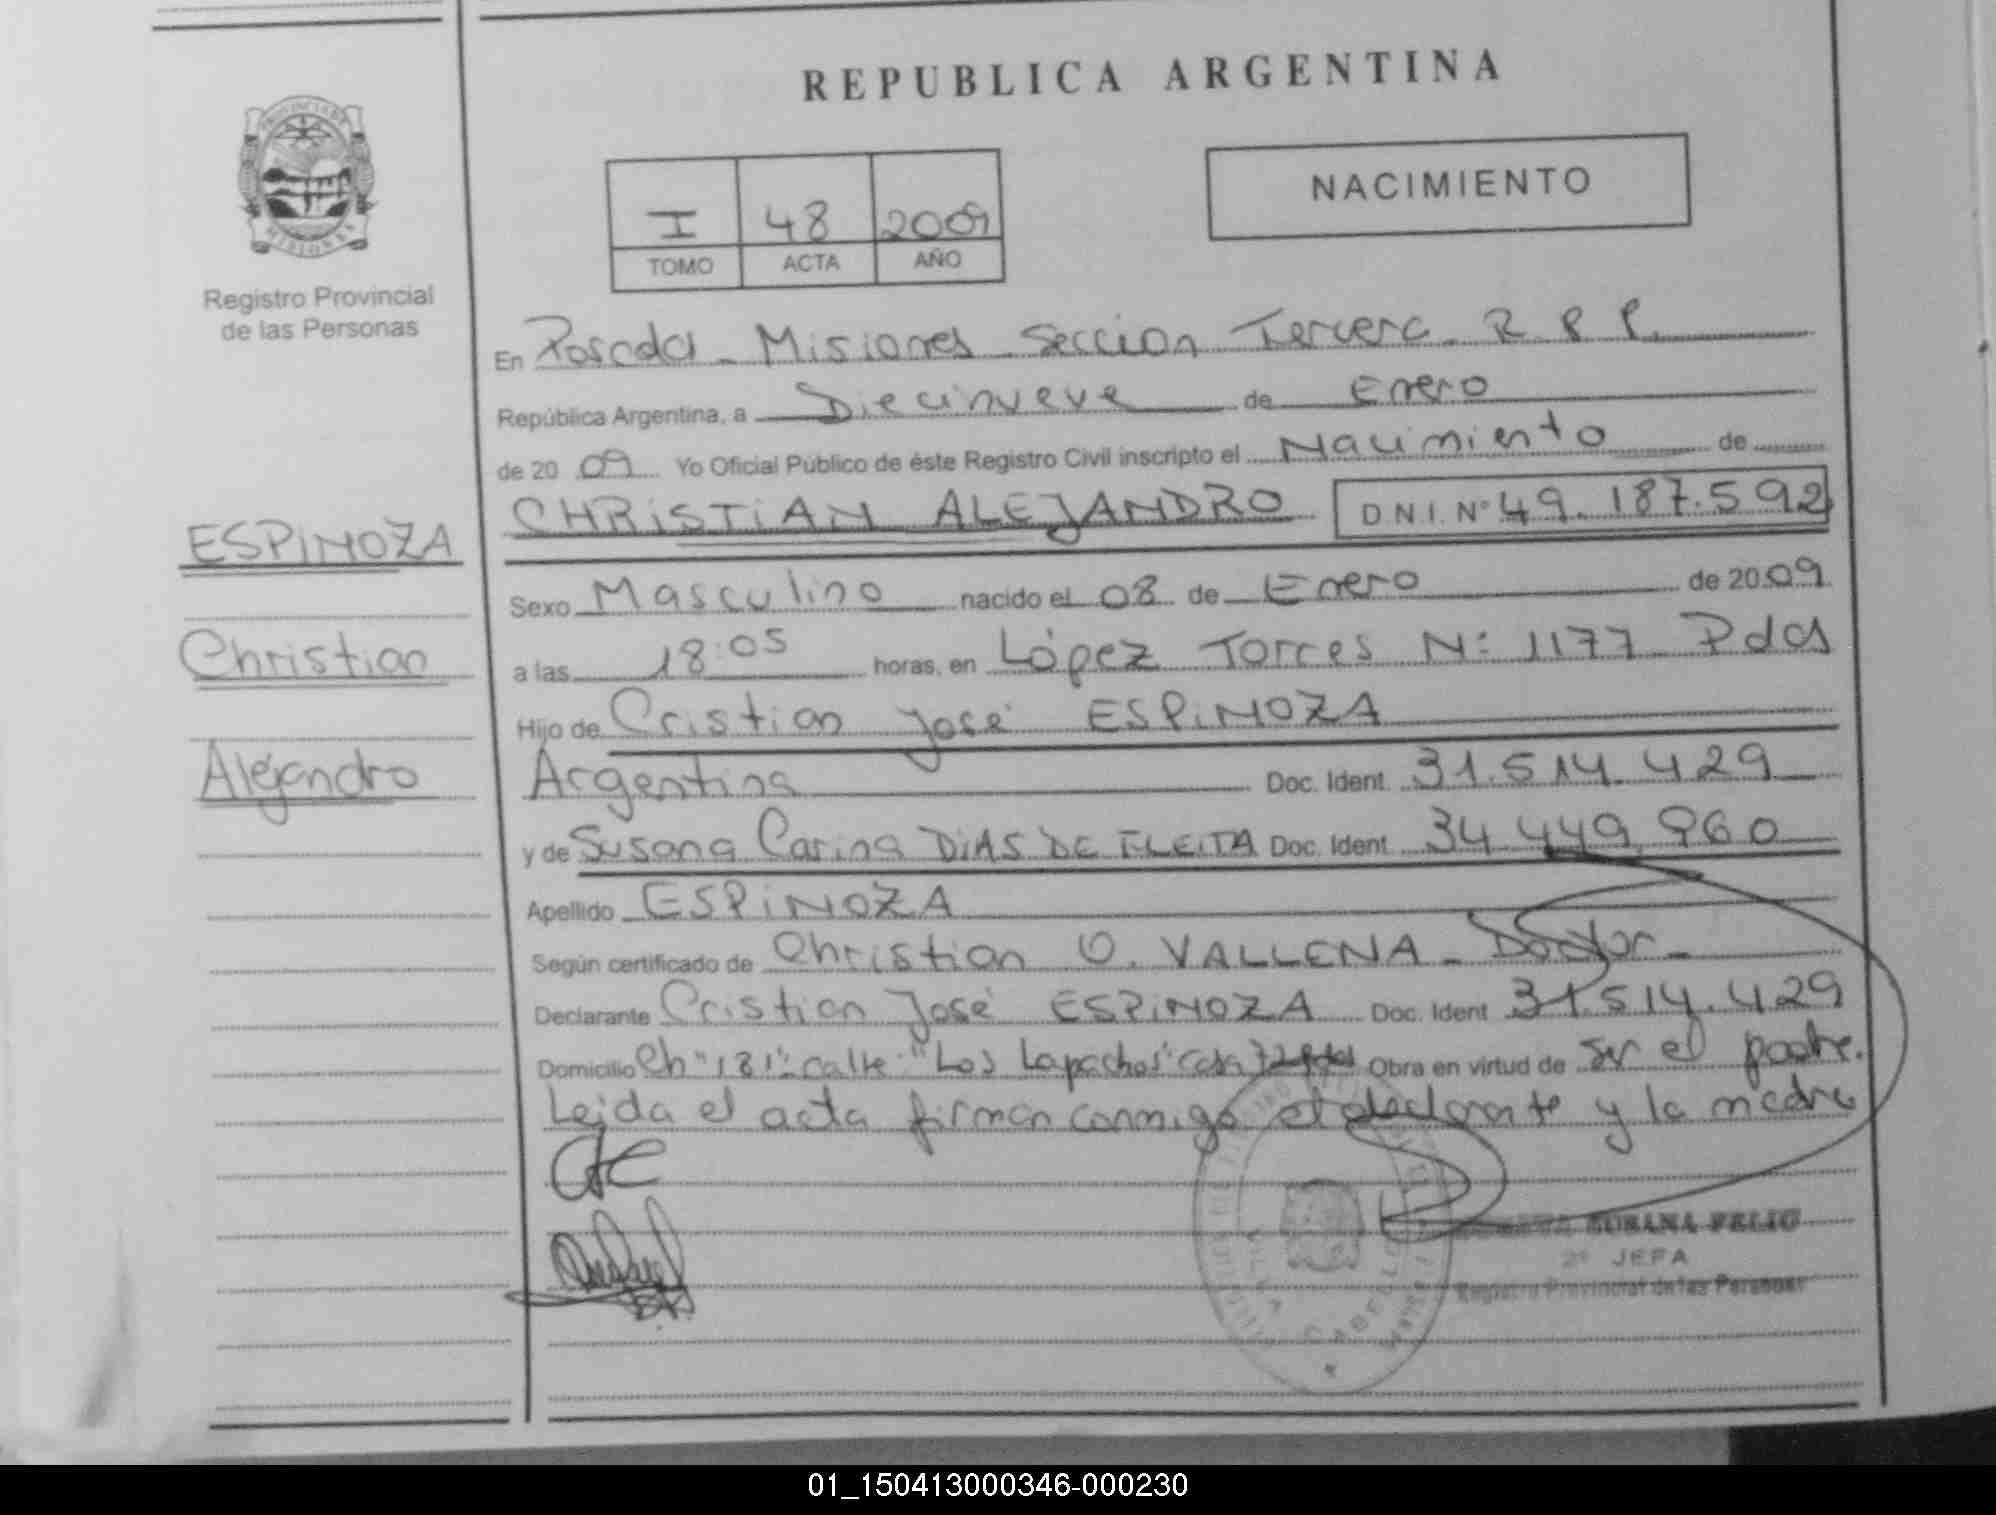 REPUBLICA ARGENTINA
PROVINCIA DE
MISIONES
Registro Provincial
de las Personas
NACIMIENTO
I 48 2009
TOMO ACTA AÑO
En Posada - Misiones - Sección Tercera - R. P. P.
República Argentina, a Diecinueve de Enero
de 2009 Yo Oficial Público de éste Registro Civil inscripto el Nacimiento de
CHRiSTiAN ALEJANDRO D.N.I. N° 49.187.592
ESPINOZA
Christian
Alejandro
Sexo Masculino nacido el 08 de Enero de 2009
a las 18:05 horas, en López Torres N: 1177 Pdas
Hijo de Cristian José ESPiNOZA
Argentina Doc. Ident. 31.514.429
y de Susana Carina DiAS DE FLEiTA Doc. Ident. 34.449.960
Apellido ESPiNOZA
Según certificado de Christian O. VALLENA - Doctor -
Declarante Cristian José ESPiNOZA Doc. Ident 31.514.429
Domicilio Ch "181" calle: "Los Lapachos" casa Obra en virtud de ser el padre.
Leida el acta firman conmigo el declarante y la madre
SUSANA FELIO
2° JEFA
Registro Provincial de las Personas
VILLA CABELLO
01_150413000346-000230